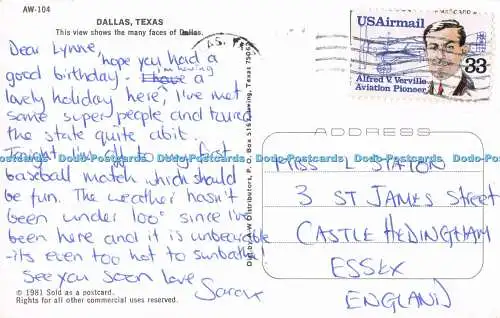 AW-104
DALLAS, TEXAS
This view shows the many faces of Dallas.
Dear Lynne,
hope you had a
good birthday. I have a
I'm having
lovely holiday here, I've met
some super people and
the state quite abit.
Tonight I'm off to my first
baseball match which should
be fun. The weather hasn't
been under 100° since I've
been here and it is unbearable
-it's even too hot to sunbathe!
See you soon love
Sarah x
© 1981 Sold as a postcard.
Rights for all other commercial uses reserved.
Distributors, P. O. Box 3151, Irving, Texas 75062
USAirmail
33
Alfred V. Verville
Aviation Pioneer
ADDRESS
MISS L STATON
3 ST JAMES STREET
CASTLE HEDINGHAM
ESSEX
ENGLAND
Dodo-Postcards Dodo-Postcards Dodo-Postcards Dodo-Postcards Dodo-Postcards